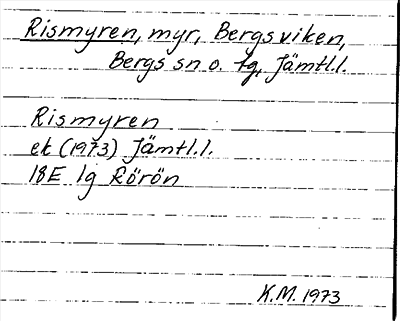 Rismyren, myr, Bergsviken,
Bergs sn o. tg, Jämtl.l.
Rismyren
ek (1973) Jämtl.l.
18E 1g Rörön
K.M. 1973